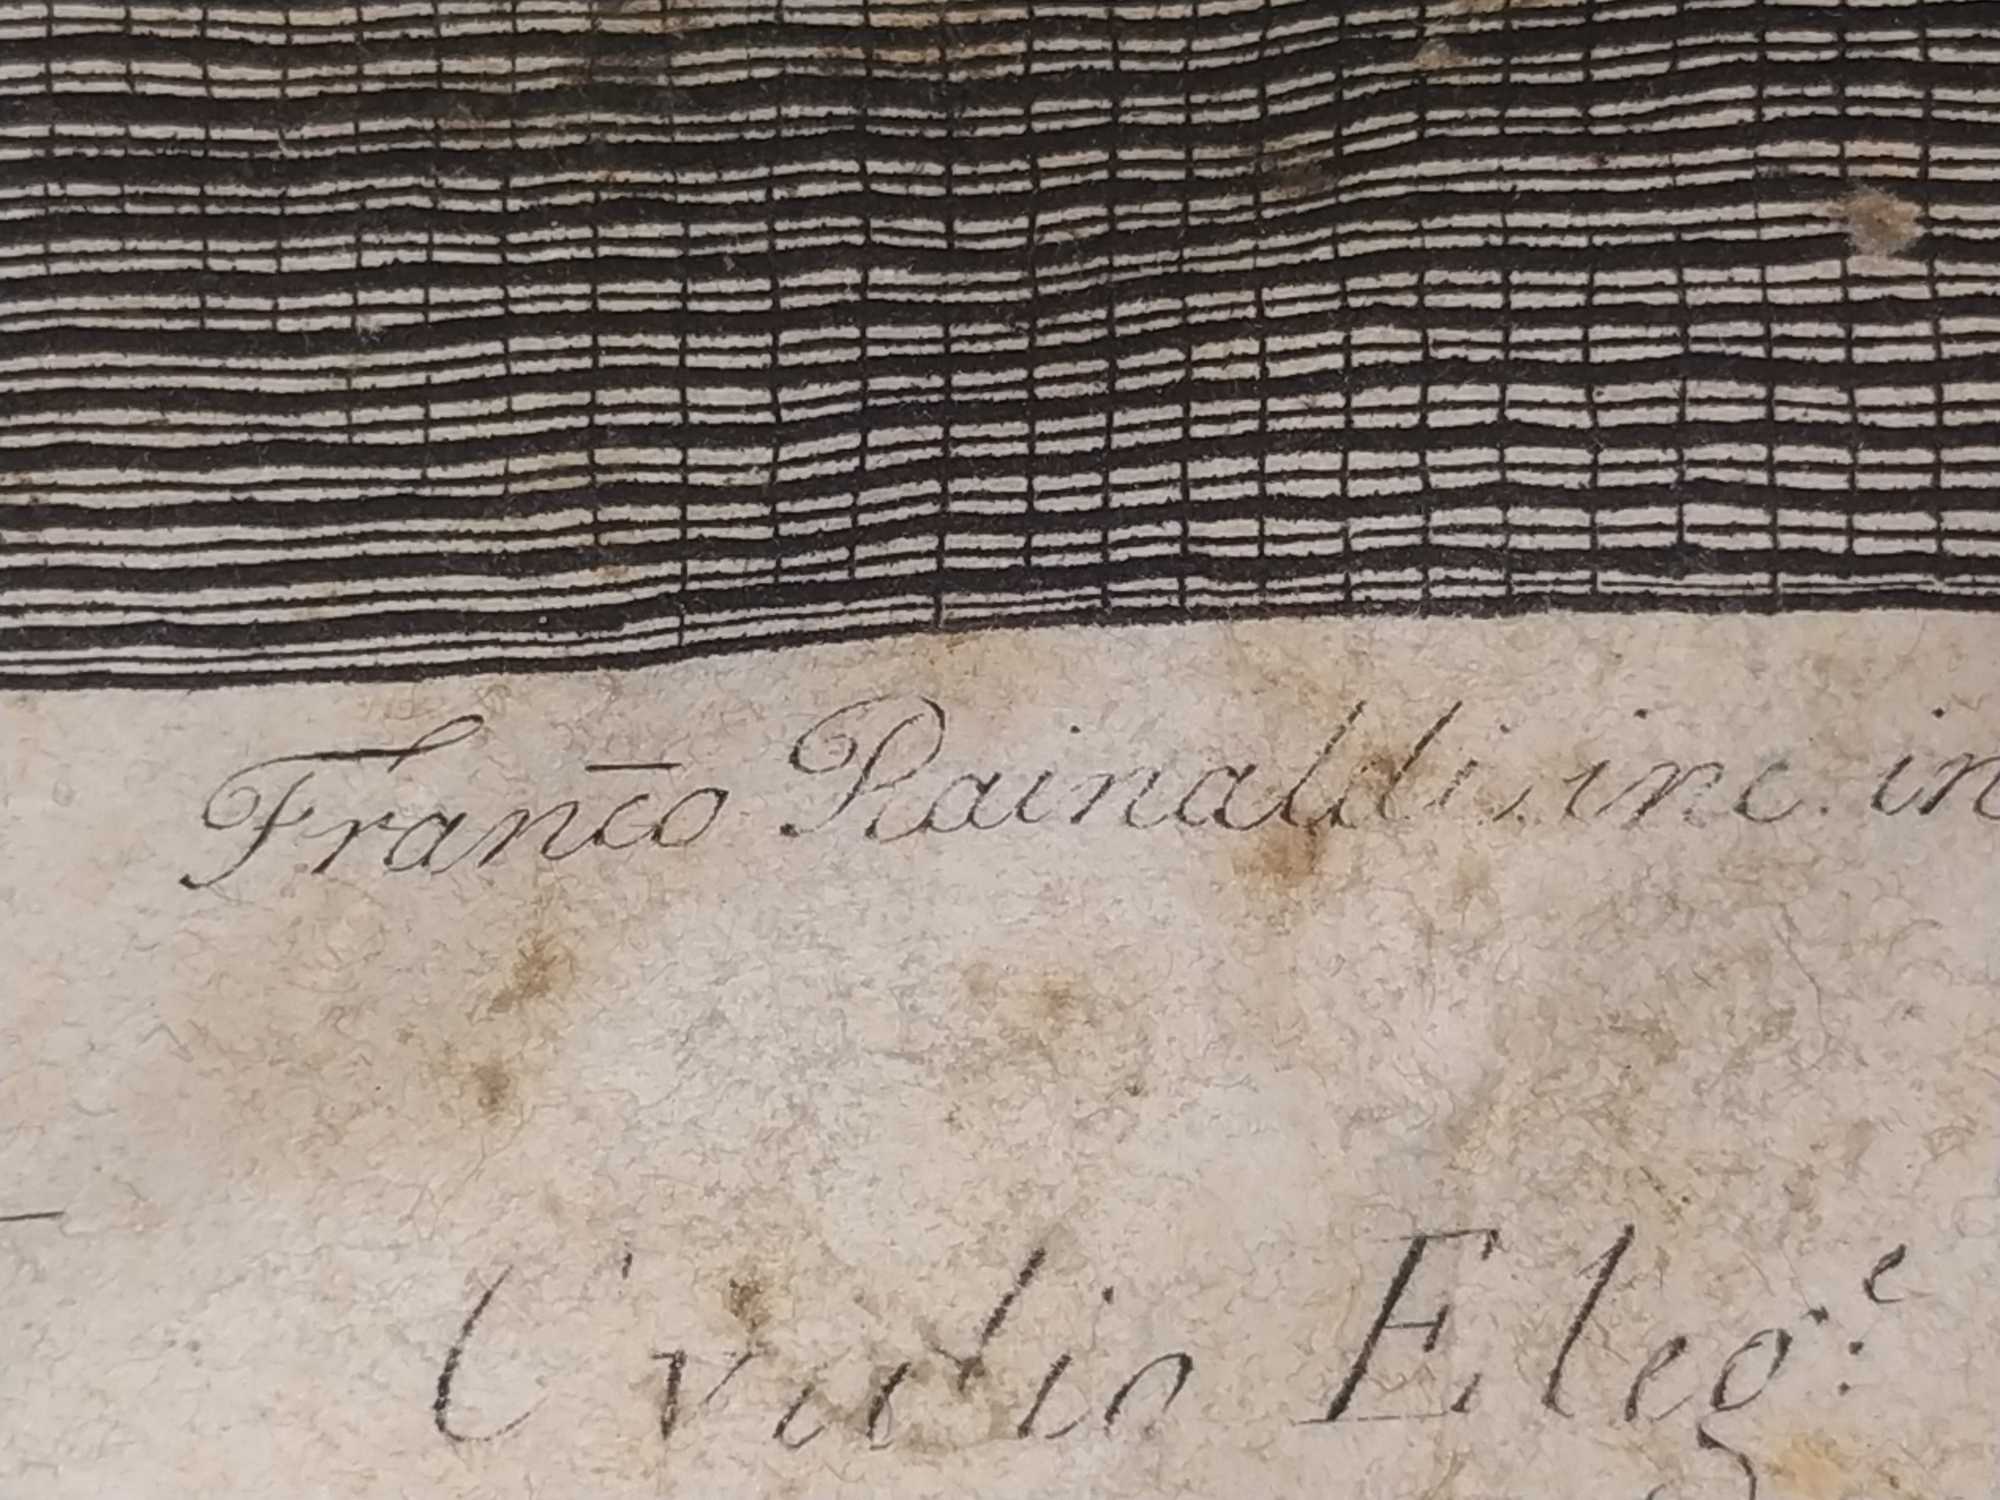 Franc̄o Rainaldi inc. in
Ovidio Eleg:e